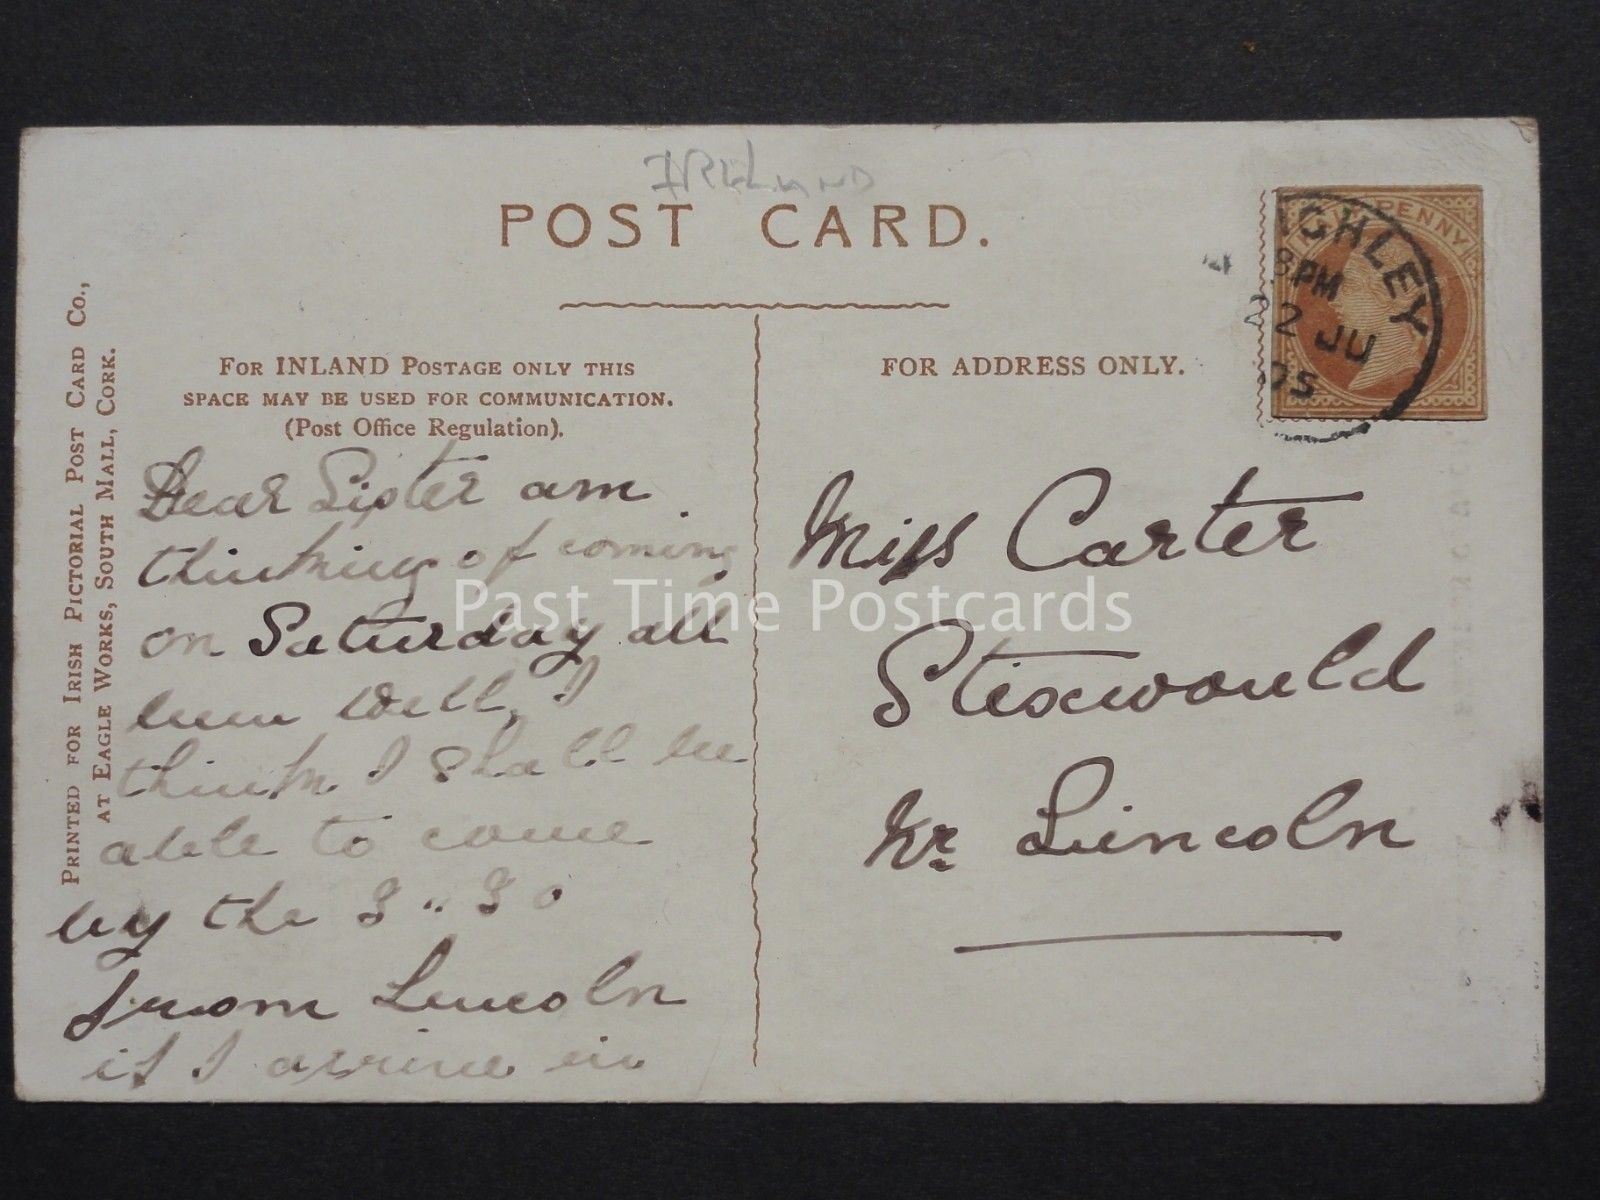 IRELAND
POST CARD.
For INLAND Postage only this
space may be used for communication.
(Post Office Regulation).
FOR ADDRESS ONLY.
PENNY
IGHLEY
8 PM
2 JU
05
Dear Sister am
thinking of coming
on Saturday all
been well, I
think I shall be
able to come
by the 3 " 30
from Lincoln
if I arrive in
Miss Carter
Stixwould
Nr Lincoln
Printed for Irish Pictorial Post Card Co.,
at Eagle Works, South Mall, Cork.
Past Time Postcards